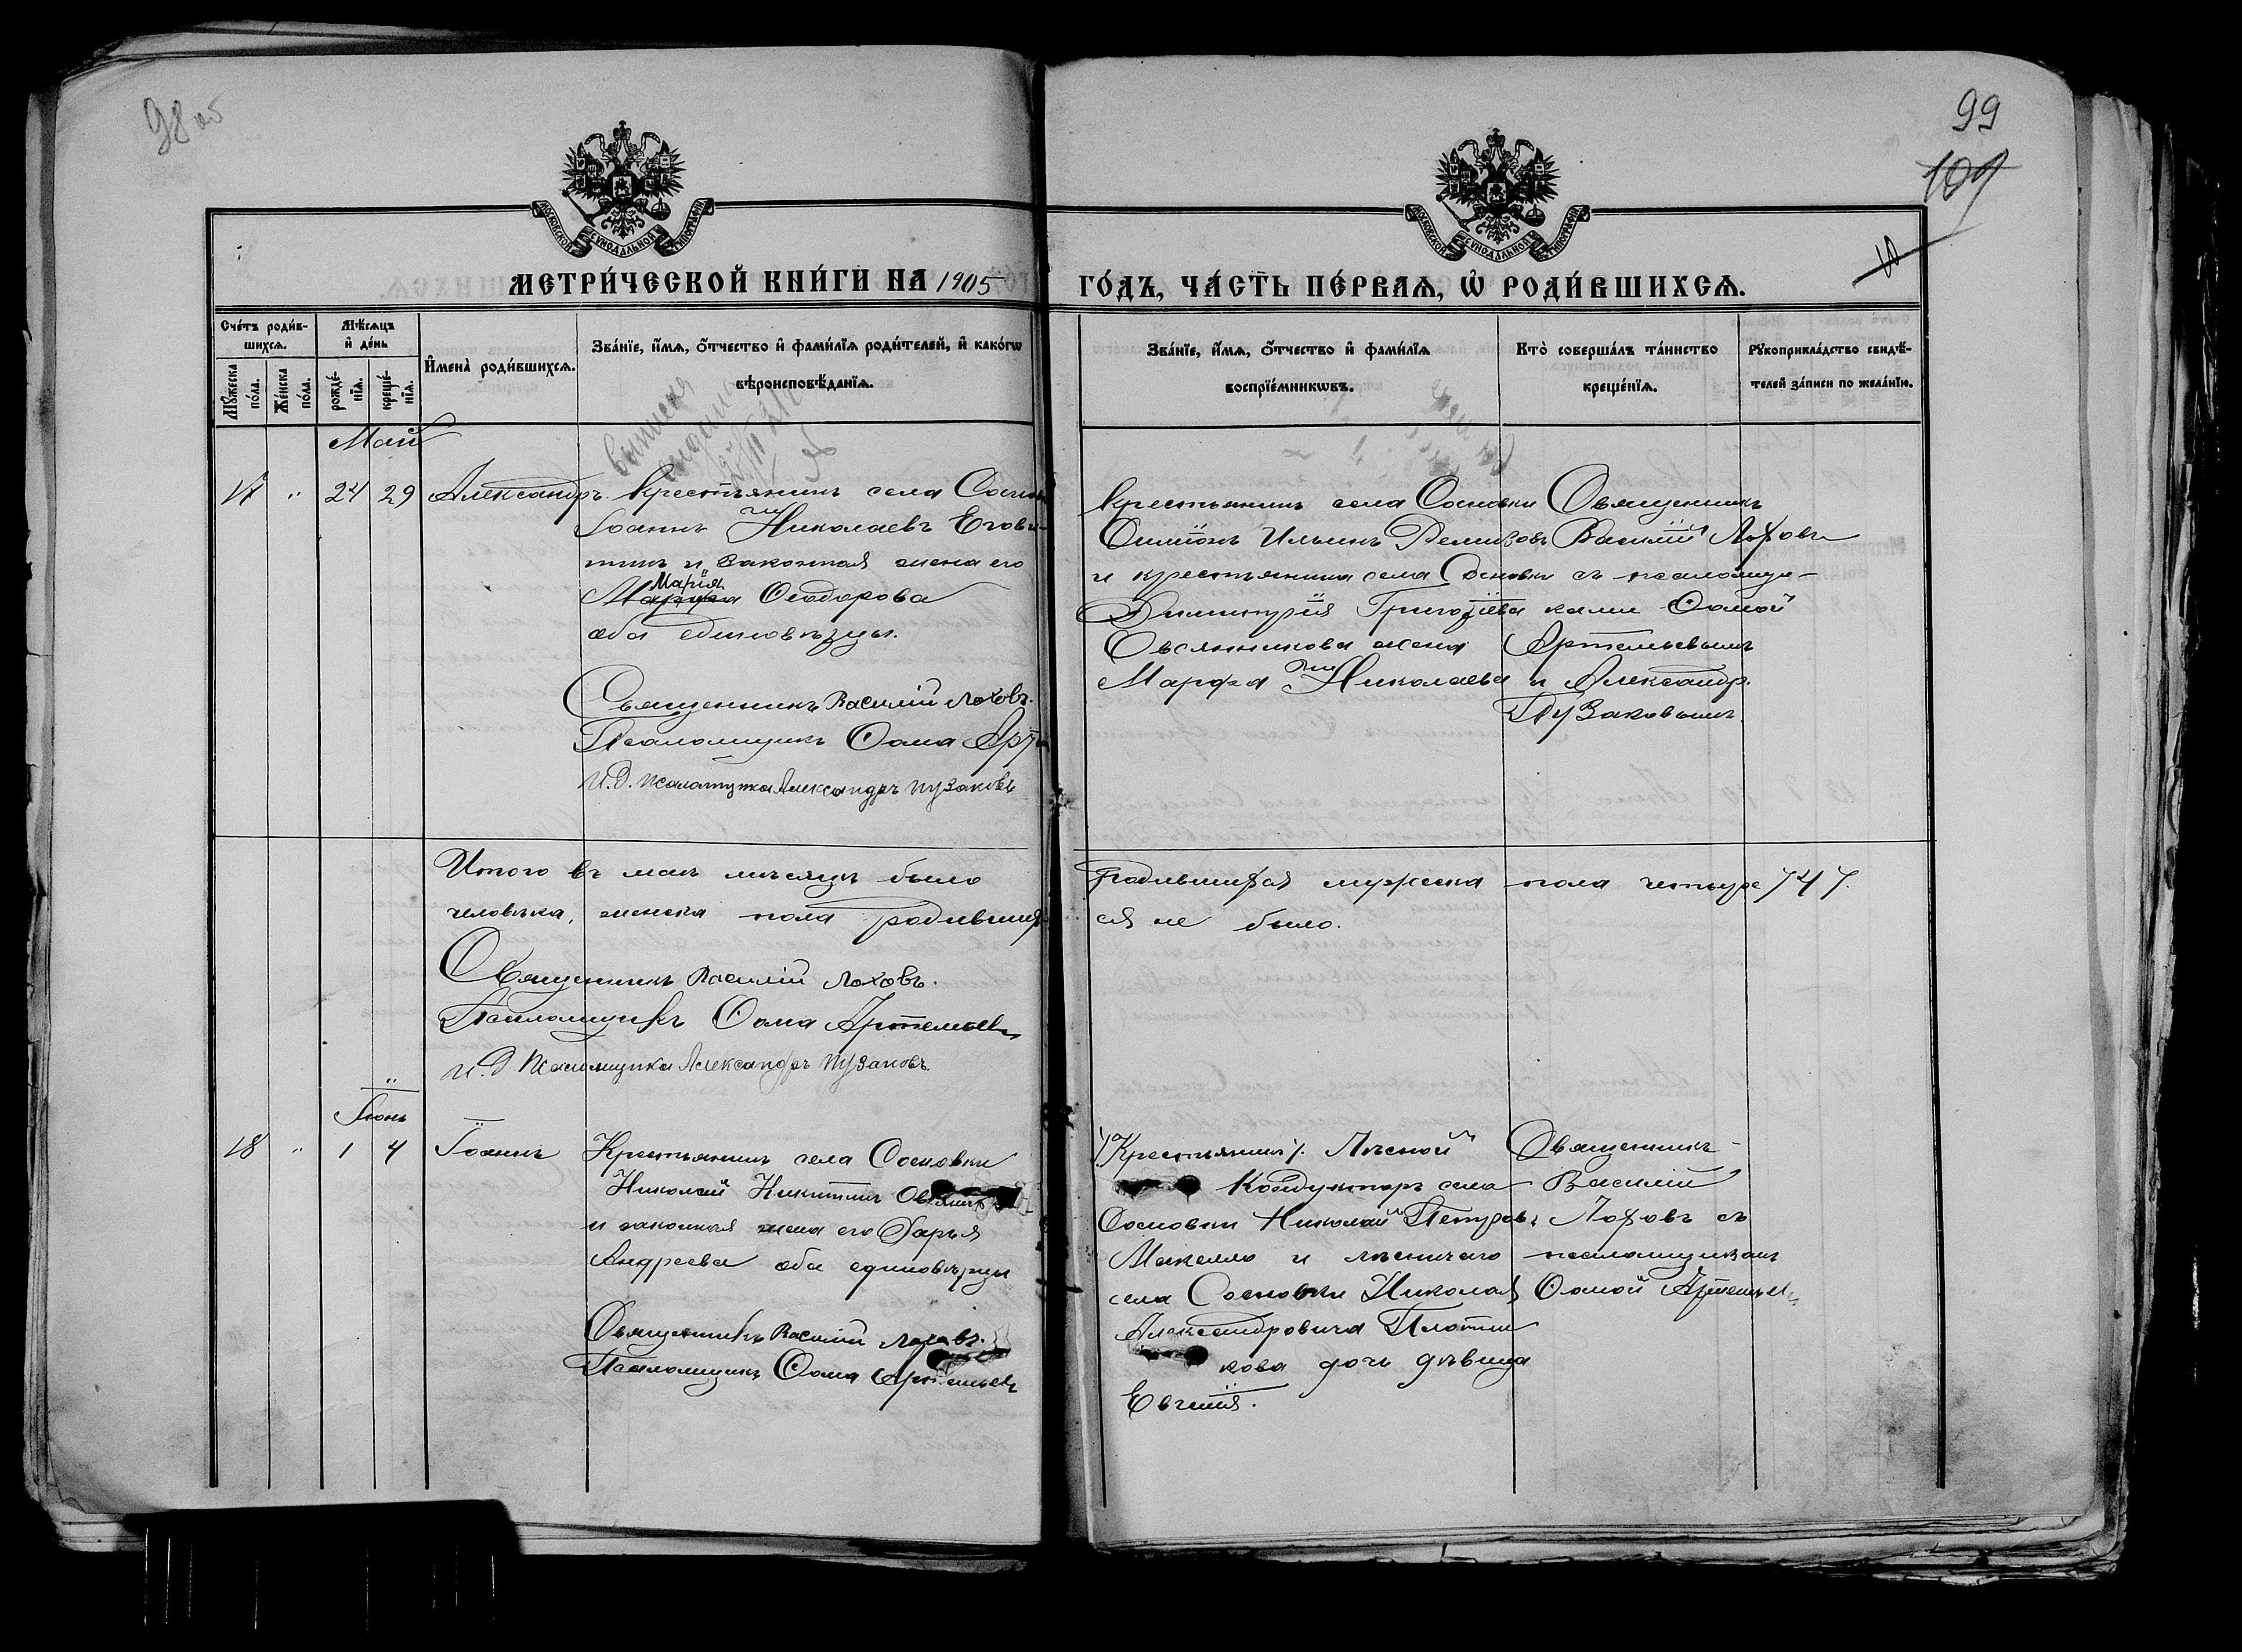 98 об
99
109
10
МОСКОВСКОЙ СУНОДАЛЬНОЙ ТИПОГРАФІИ
МОСКОВСКОЙ СУНОДАЛЬНОЙ ТИПОГРАФІИ
МЕТРИ́ЧЕСКОЙ КНИ́ГИ НА 1905 ГО́ДЪ, ЧА́СТЬ ПЕ́РВАѦ, Ѡ҆ РОДИ́ВШИХСѦ.
Сче́тъ роди́в-
шихсѧ.
Мѣ́сѧцъ
и҆ де́нь
Мꙋ́жеска по́ла.
Же́нска по́ла.
рожде́-нїѧ.
креще́-нїѧ.
И҆мена̀ роди́вшихсѧ.
Зва́нїе, и҆́мѧ, ѻ҆́тчество и҆ фами́лїѧ роди́телей, и҆ како́гѡ
вѣроисповѣ́данїѧ.
Зва́нїе, и҆́мѧ, ѻ҆́тчество и҆ фами́лїѧ
воспрїе́мникѡвъ.
Кто̀ соверша́лъ та́инство
креще́нїѧ.
Рꙋкоприкла́дство свидѣ́-
телей за́писи по жела́нїю.
выписка
выдана
Май
17 " 24 29 Александръ.
Крестьянинъ села Сосновки
Іоаннъ Николаевъ Егови-
тинъ и законная жена его
Марія
Марфа Ѳеодорова
оба единовѣрцы.
Священникъ Василій Лоховъ.
Псаломщикъ Ѳома Арте
И.д. псаломщика Александръ Пузаковъ
Крестьянинъ села Сосновки
Симіонъ Ильинъ Ремизовъ
и крестьянина села Сосновки
Димитрія Григоріева
Овсянникова жена
Марфа Николаева
Священникъ
Василій Лоховъ
съ псаломщи-
ками Ѳомой
Артемьевымъ
и Александр.
Пузаковымъ.
Итого въ маѣ мѣсяцѣ было родившихся мужеска пола четыре /4/.
человѣка, женска пола родивших-
ся не было.
Священникъ Василій Лоховъ.
Псаломщикъ Ѳома Артемьевъ
И.д. Псаломщика Александръ Пузаковъ.
Іюнь
18 " 1 4 Іоаннъ
Крестьянинъ села Сосновки
Николай Никитинъ
и законная жена его Дарья
Андреева оба единовѣрцы
Священникъ Василій Лоховъ.
Псаломщикъ Ѳома Артемьевъ
/Крестьянинъ/. Лѣсной
Кондукторъ села
Сосновки Николай Петровъ
Макелло и лѣсничаго
села Сосновки Николая
Александровича Плотни
кова дочь дѣвица
Евгенія.
Священникъ
Василій
Лоховъ съ
псаломщикомъ
Ѳомой Артемьев